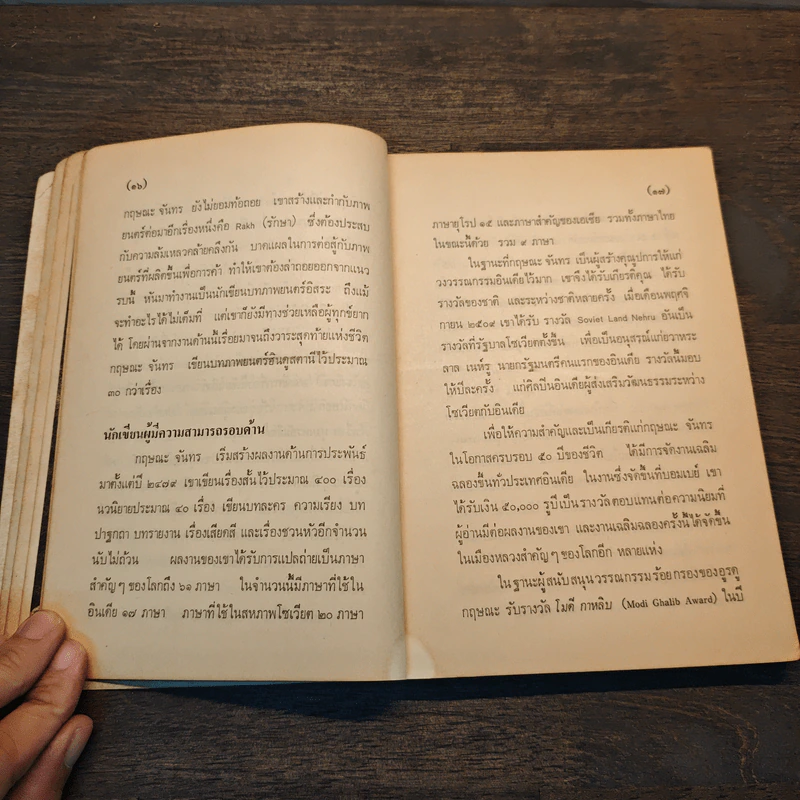 (๑๖)
กฤษณะ จันทร ยังไม่ยอมท้อถอย เขาสร้างและกำกับภาพ
ยนตร์ต่อมาอีกเรื่องหนึ่งคือ Rakh (รักษา) ซึ่งต้องประสบ
กับความล้มเหลวคล้ายคลึงกัน บาดแผลในการต่อสู้กับภาพ
ยนตร์ที่ผลิตขึ้นเพื่อการค้า ทำให้เขาต้องล่าถอยออกจากแนว
รบนี้ หันมาทำงานเป็นนักเขียนบทภาพยนตร์อิสระ ถึงแม้
จะทำอะไรได้ไม่เต็มที่ แต่เขาก็ยังมีทางช่วยเหลือผู้ทุกข์ยาก
ได้ โดยผ่านจากงานด้านนี้เรื่อยมาจนถึงวาระสุดท้ายแห่งชีวิต
กฤษณะ จันทร เขียนบทภาพยนตร์ฮินดูสตานีไว้ประมาณ
๓๐ กว่าเรื่อง
นักเขียนผู้มีความสามารถรอบด้าน
กฤษณะ จันทร เริ่มสร้างผลงานด้านการประพันธ์
มาตั้งแต่ปี ๒๔๗๙ เขาเขียนเรื่องสั้นไว้ประมาณ ๔๐๐ เรื่อง
นวนิยายประมาณ ๔๐ เรื่อง เขียนบทละคร ความเรียง บท
ปาฐกถา บทรายงาน เรื่องเสียดสี และเรื่องชวนหัวอีกจำนวน
นับไม่ถ้วน ผลงานของเขาได้รับการแปลถ่ายเป็นภาษา
สำคัญๆ ของโลกถึง ๖๑ ภาษา ในจำนวนนี้มีภาษาที่ใช้ใน
อินเดีย ๑๗ ภาษา ภาษาที่ใช้ในสหภาพโซเวียต ๒๐ ภาษา
(๑๗)
ภาษายุโรป ๑๕ และภาษาสำคัญของเอเชีย รวมทั้งภาษาไทย
ในขณะนี้ด้วย รวม ๙ ภาษา
ในฐานะที่กฤษณะ จันทร เป็นผู้สร้างคุณูปการให้แก่
วงวรรณกรรมอินเดียไว้มาก เขาจึงได้รับเกียรติคุณ ได้รับ
รางวัลของชาติ และระหว่างชาติหลายครั้ง เมื่อเดือนพฤศจิ
กายน ๒๕๐๙ เขาได้รับ รางวัล Soviet Land Nehru อันเป็น
รางวัลที่รัฐบาลโซเวียตตั้งขึ้น เพื่อเป็นอนุสรณ์แก่ยวาหระ
ลาล เนห์รู นายกรัฐมนตรีคนแรกของอินเดีย รางวัลนี้มอบ
ให้ปีละครั้ง แก่ศิลปินอินเดียผู้ส่งเสริมวัฒนธรรมระหว่าง
โซเวียตกับอินเดีย
เพื่อให้ความสำคัญและเป็นเกียรติแก่กฤษณะ จันทร
ในโอกาสครบรอบ ๕๐ ปีของชีวิต ได้มีการจัดงานเฉลิม
ฉลองขึ้นทั่วประเทศอินเดีย ในงานซึ่งจัดขึ้นที่บอมเบย์ เขา
ได้รับเงิน ๕๐,๐๐๐ รูปีเป็นรางวัลตอบแทนต่อความนิยมที่
ผู้อ่านมีต่อผลงานของเขา และงานเฉลิมฉลองครั้งนี้ได้จัดขึ้น
ในเมืองหลวงสำคัญๆ ของโลกอีก หลายแห่ง
ในฐานะผู้สนับสนุนวรรณกรรมร้อยกรองของอูรดู
กฤษณะ รับรางวัล โมดี กาหลิบ (Modi Ghalib Award) ในปี